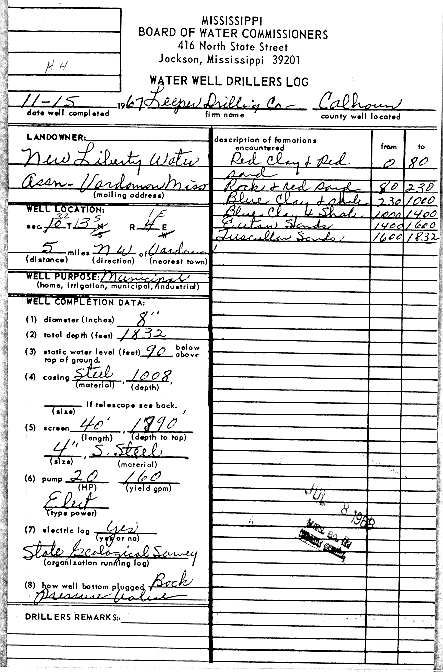 MISSISSIPPI
BOARD OF WATER COMMISSIONERS
416 North State Street
Jackson, Mississippi 39201
WATER WELL DRILLERS LOG
11-15 1967 Leeper Drilling Co- Calhoun
date well completed firm name county well located
LANDOWNER:
New Liberty Water
Assn. Vardaman Miss
(mailing address)
WELL LOCATION:
sec. T R 4 E
5 miles NW of Vardaman
(distance) (direction) (nearest town)
WELL PURPOSE: Municipal
(home, irrigation, municipal, industrial)
WELL COMPLETION DATA:
(1) diameter (inches) 8"
(2) total depth (feet) 1832
(3) static water level (feet) 90 below above
top of ground.
(4) casing Steel, 1008,
(material) (depth)
If telescope see back.
(size)
(5) screen 40' 1790
(length) (depth to top)
4", S. Steel
(size) (material)
(6) pump 20 160
(HP) (yield gpm)
Elect
(type power)
(7) electric log yes
(yes or no)
State Geological Survey
(organization running log)
(8) how well bottom plugged Back
Pressure Valve
DRILLERS REMARKS:
description of formations encountered from to
Red Clay & Red Sand 0 80
Rock & red sand 80 230
Blue Clay & shale 230 1000
Blue Clay & Shale 1000 1400
Eutaw Sands 1400 1600
Tuscaloosa Sands 1600 1832
JUL 8 1968